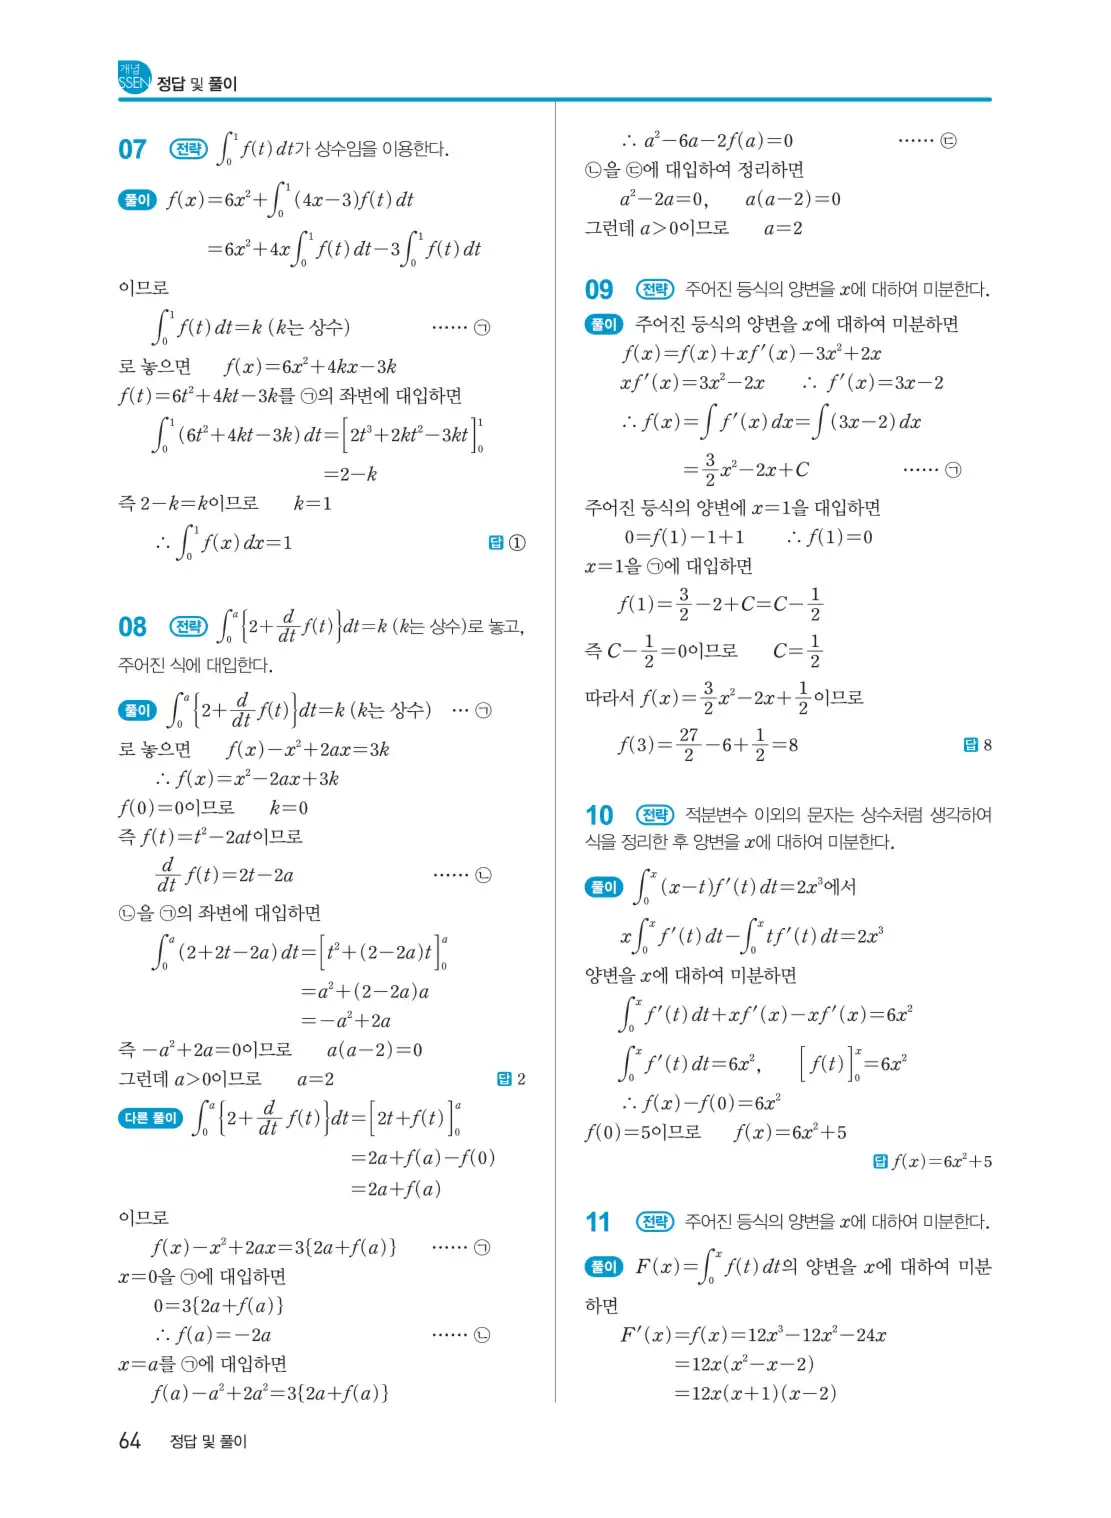 개념
SSEN 정답 및 풀이
07 전략 ∫₀¹ f(t)dt가 상수임을 이용한다.
풀이 f(x)=6x²+∫₀¹ (4x−3)f(t)dt
=6x²+4x∫₀¹ f(t)dt−3∫₀¹ f(t)dt
이므로
∫₀¹ f(t)dt=k (k는 상수) …… ㉠
로 놓으면 f(x)=6x²+4kx−3k
f(t)=6t²+4kt−3k를 ㉠의 좌변에 대입하면
∫₀¹ (6t²+4kt−3k)dt=[2t³+2kt²−3kt]₀¹
=2−k
즉 2−k=k이므로 k=1
∴ ∫₀¹ f(x)dx=1 답 ①
08 전략 ∫₀ᵃ {2+d/dt f(t)}dt=k (k는 상수)로 놓고,
주어진 식에 대입한다.
풀이 ∫₀ᵃ {2+d/dt f(t)}dt=k (k는 상수) … ㉠
로 놓으면 f(x)−x²+2ax=3k
∴ f(x)=x²−2ax+3k
f(0)=0이므로 k=0
즉 f(t)=t²−2at이므로
d/dt f(t)=2t−2a …… ㉡
㉡을 ㉠의 좌변에 대입하면
∫₀ᵃ (2+2t−2a)dt=[t²+(2−2a)t]₀ᵃ
=a²+(2−2a)a
=−a²+2a
즉 −a²+2a=0이므로 a(a−2)=0
그런데 a>0이므로 a=2 답 2
다른 풀이 ∫₀ᵃ {2+d/dt f(t)}dt=[2t+f(t)]₀ᵃ
=2a+f(a)−f(0)
=2a+f(a)
이므로
f(x)−x²+2ax=3{2a+f(a)} …… ㉠
x=0을 ㉠에 대입하면
0=3{2a+f(a)}
∴ f(a)=−2a …… ㉡
x=a를 ㉠에 대입하면
f(a)−a²+2a²=3{2a+f(a)}
∴ a²−6a−2f(a)=0 …… ㉢
㉡을 ㉢에 대입하여 정리하면
a²−2a=0, a(a−2)=0
그런데 a>0이므로 a=2
09 전략 주어진 등식의 양변을 x에 대하여 미분한다.
풀이 주어진 등식의 양변을 x에 대하여 미분하면
f(x)=f(x)+xf′(x)−3x²+2x
xf′(x)=3x²−2x ∴ f′(x)=3x−2
∴ f(x)=∫ f′(x)dx=∫ (3x−2)dx
=3/2 x²−2x+C …… ㉠
주어진 등식의 양변에 x=1을 대입하면
0=f(1)−1+1 ∴ f(1)=0
x=1을 ㉠에 대입하면
f(1)=3/2−2+C=C−1/2
즉 C−1/2=0이므로 C=1/2
따라서 f(x)=3/2 x²−2x+1/2이므로
f(3)=27/2−6+1/2=8 답 8
10 전략 적분변수 이외의 문자는 상수처럼 생각하여
식을 정리한 후 양변을 x에 대하여 미분한다.
풀이 ∫₀ˣ (x−t)f′(t)dt=2x³에서
x∫₀ˣ f′(t)dt−∫₀ˣ tf′(t)dt=2x³
양변을 x에 대하여 미분하면
∫₀ˣ f′(t)dt+xf′(x)−xf′(x)=6x²
∫₀ˣ f′(t)dt=6x², [f(t)]₀ˣ=6x²
∴ f(x)−f(0)=6x²
f(0)=5이므로 f(x)=6x²+5
답 f(x)=6x²+5
11 전략 주어진 등식의 양변을 x에 대하여 미분한다.
풀이 F(x)=∫₀ˣ f(t)dt의 양변을 x에 대하여 미분
하면
F′(x)=f(x)=12x³−12x²−24x
=12x(x²−x−2)
=12x(x+1)(x−2)
64 정답 및 풀이